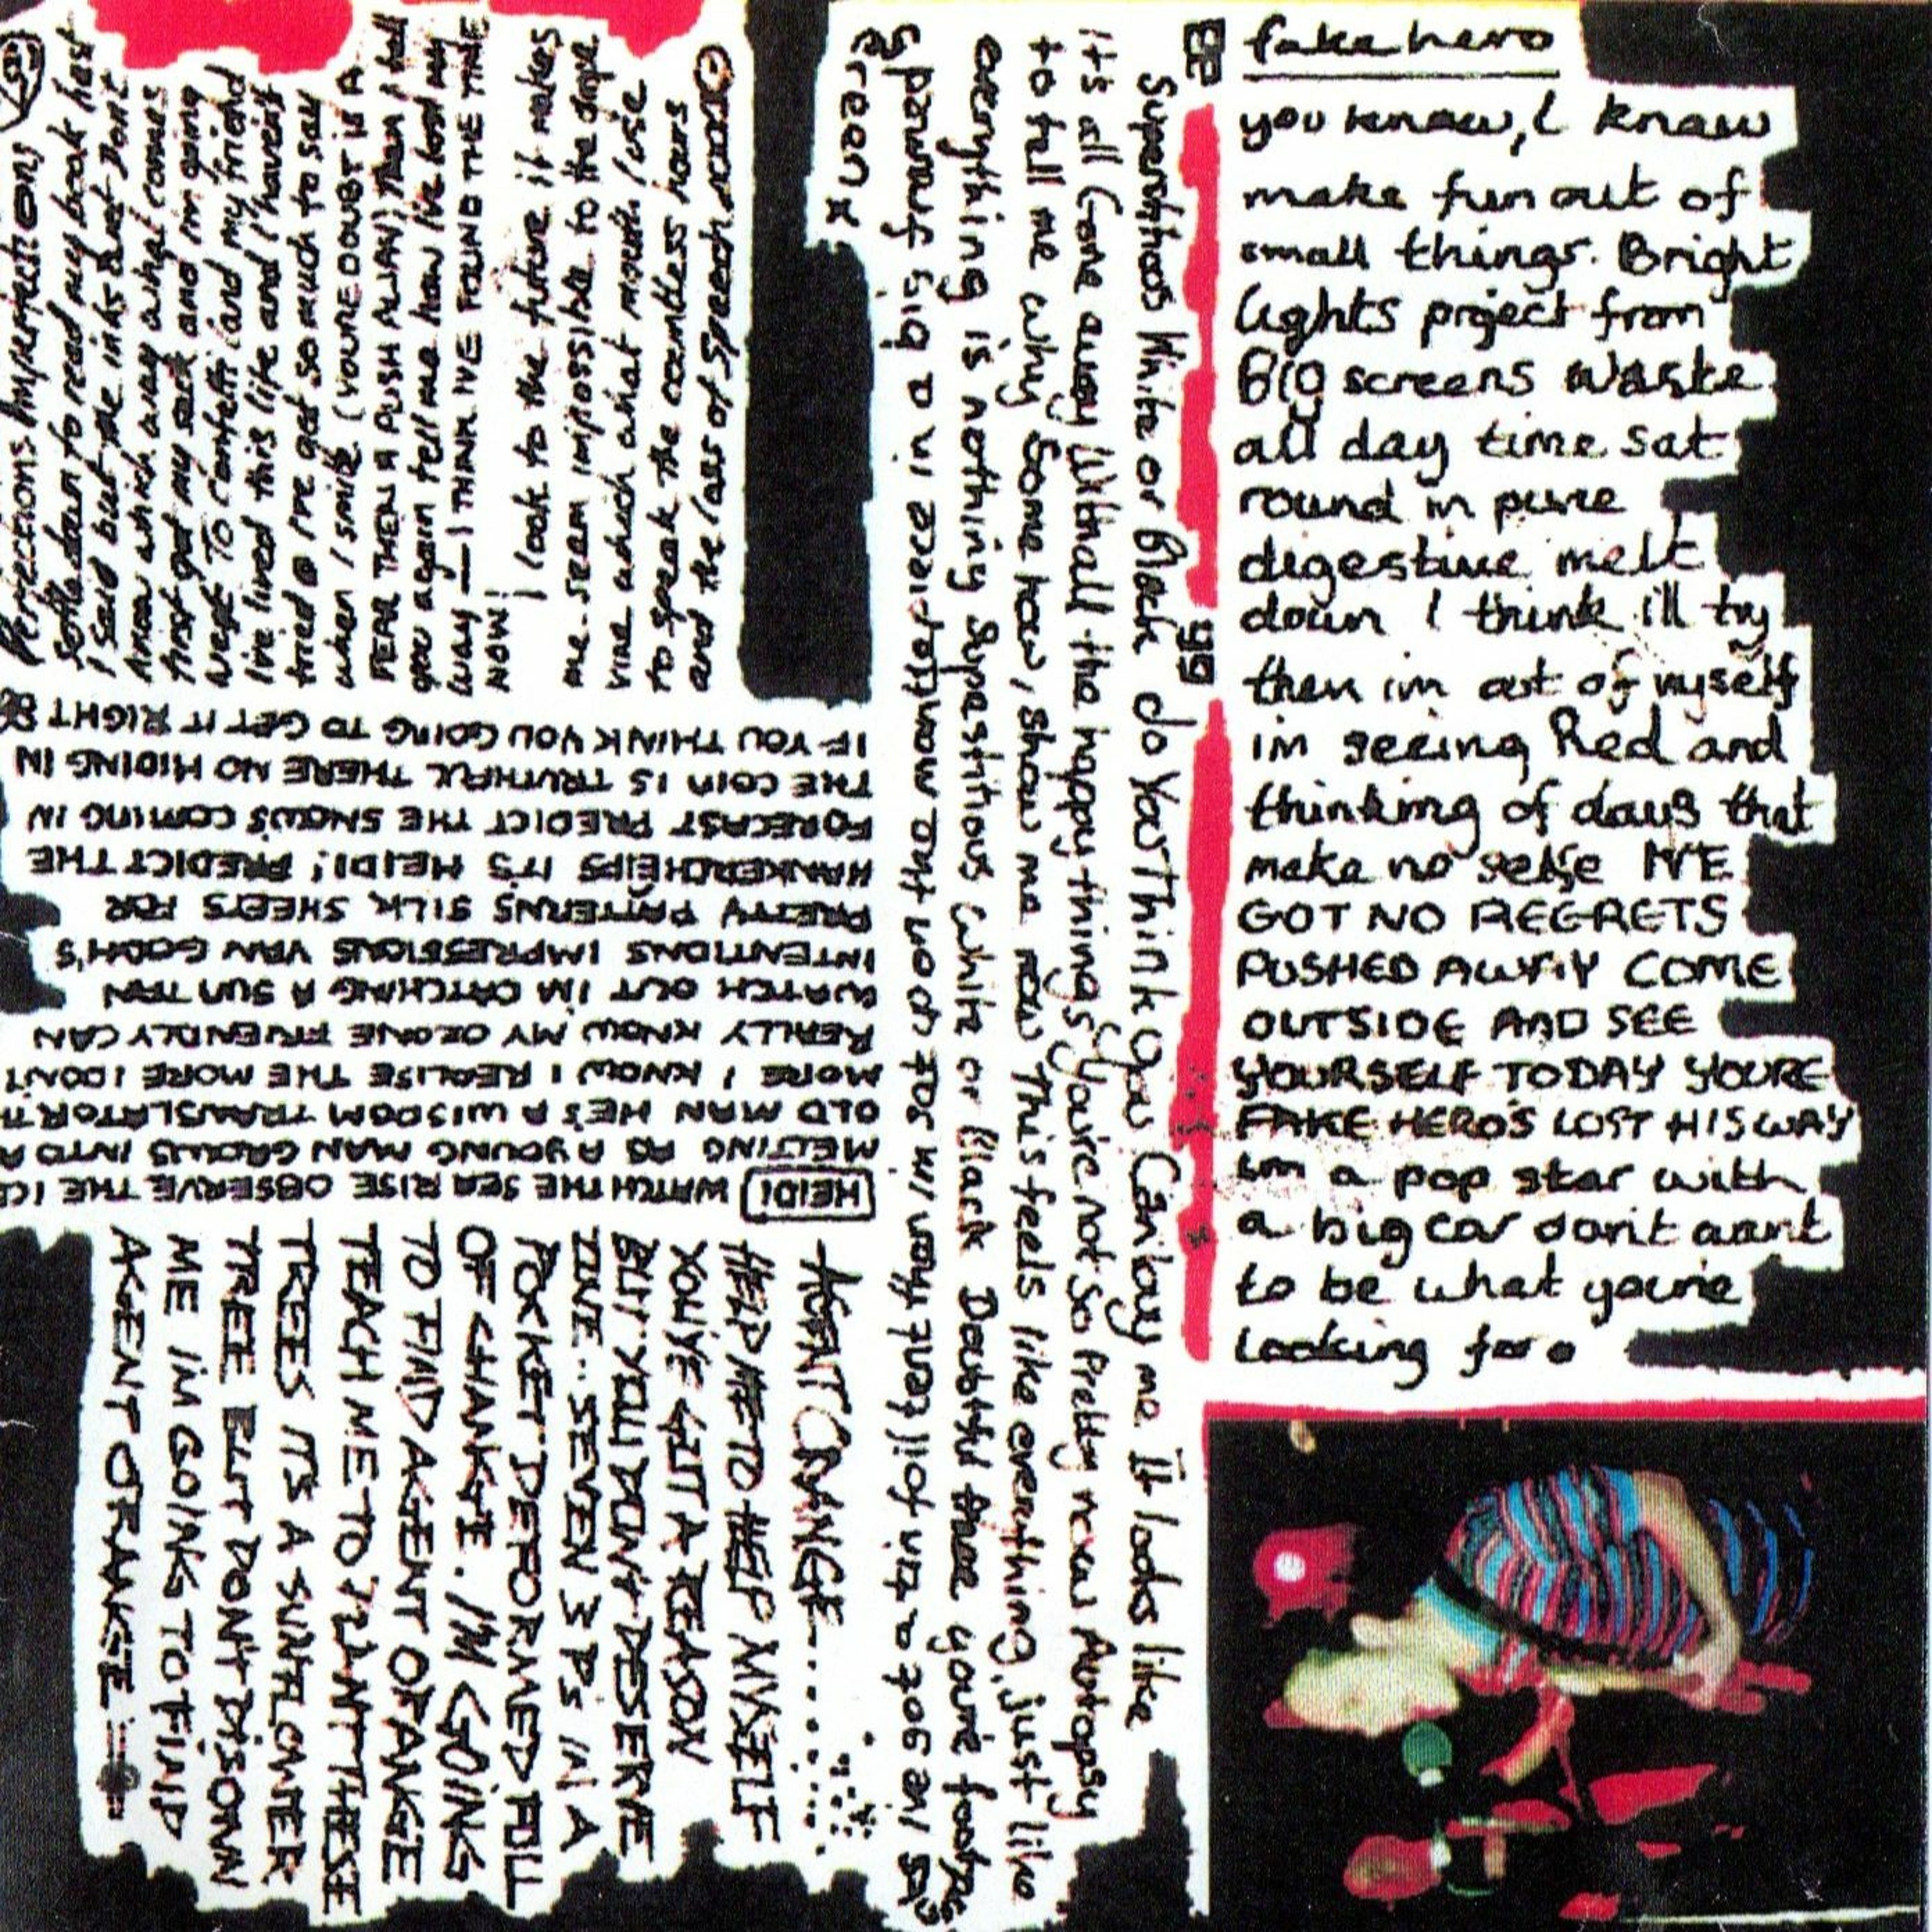 fake hero
you know, I know
make fun out of
small things. Bright
lights project from
BIG screens waste
all day time sat
round in pure
digestive melt
down I think ill try
then im out of myself
im seeing Red and
thinking of days that
make no sense IVE
GOT NO REGRETS
PUSHED AWAY COME
OUTSIDE AND SEE
YOURSELF TODAY YOURE
FAKE HERO'S LOST HIS WAY
im a pop star with
a big car dont want
to be what youre
looking for
Superstitious White or Black do You Think you Can buy me It looks like
its all Gone away Withall the happy things, You're not so Pretty now Autopsy
to tell me why Some how, show me now This feels like everything, just like
everything is nothing Superstitious White or Black Doubtful there youre
Green x
AGENT ORANGE
HELP ME TO HELP MYSELF
YOU'VE GOT A REASON
BUT YOU DON'T DESERVE
IN A
POCKET DEFORMED FULL
OF CHANGE. I'M GOING
TO FIND AGENT ORANGE
TEACH ME TO PLANT THESE
TREES IT'S A SUNFLOWER
TREE BUT DON'T DISOWN
ME I'M GOING TO FIND
AGENT ORANGE
HEIDI WATCH THE SEA RISE OBSERVE THE ICE
MELTING AS A YOUNG MAN GROWS INTO A
OLD MAN HE'S A WISDOM TRANSLATOR
MORE I KNOW I REALISE THE MORE I DON'T
REALLY KNOW MY OZONE FRIENDLY CAN
WATCH OUT I'M CATCHING A SUN TAN
INTENTIONS IMPRESSIONS VAN GOGH'S
PRETTY PATTERNS SILK SHEETS FOR
HANKERCHEIFS IT'S HEIDI! PREDICT THE
FORECAST PREDICT THE SNOWS COMING IN
THE COIN IS TRUTHFUL THERE NO HIDING IN
IF YOU THINK YOU GOING TO GET IT RIGHT
Perfections Imperfections
Settle down to read my book hast
I said but the inks wet Dont
know which way what comes
first get my sack and im going
wept TO confetti (and my friend
I've lived this life and I havent
tried I've got so much to say
when I smile (YOURE DOUBT IS A
FEAR THEN A PUSH AWAY) Then I fall
you again tell me how I've lost my
way — I THINK IVE FOUND THE TIME
NOW!
I look to the future it makes
me seem impossible to the
which what mouth I use
to speak the countless hours
and the loss of Speech